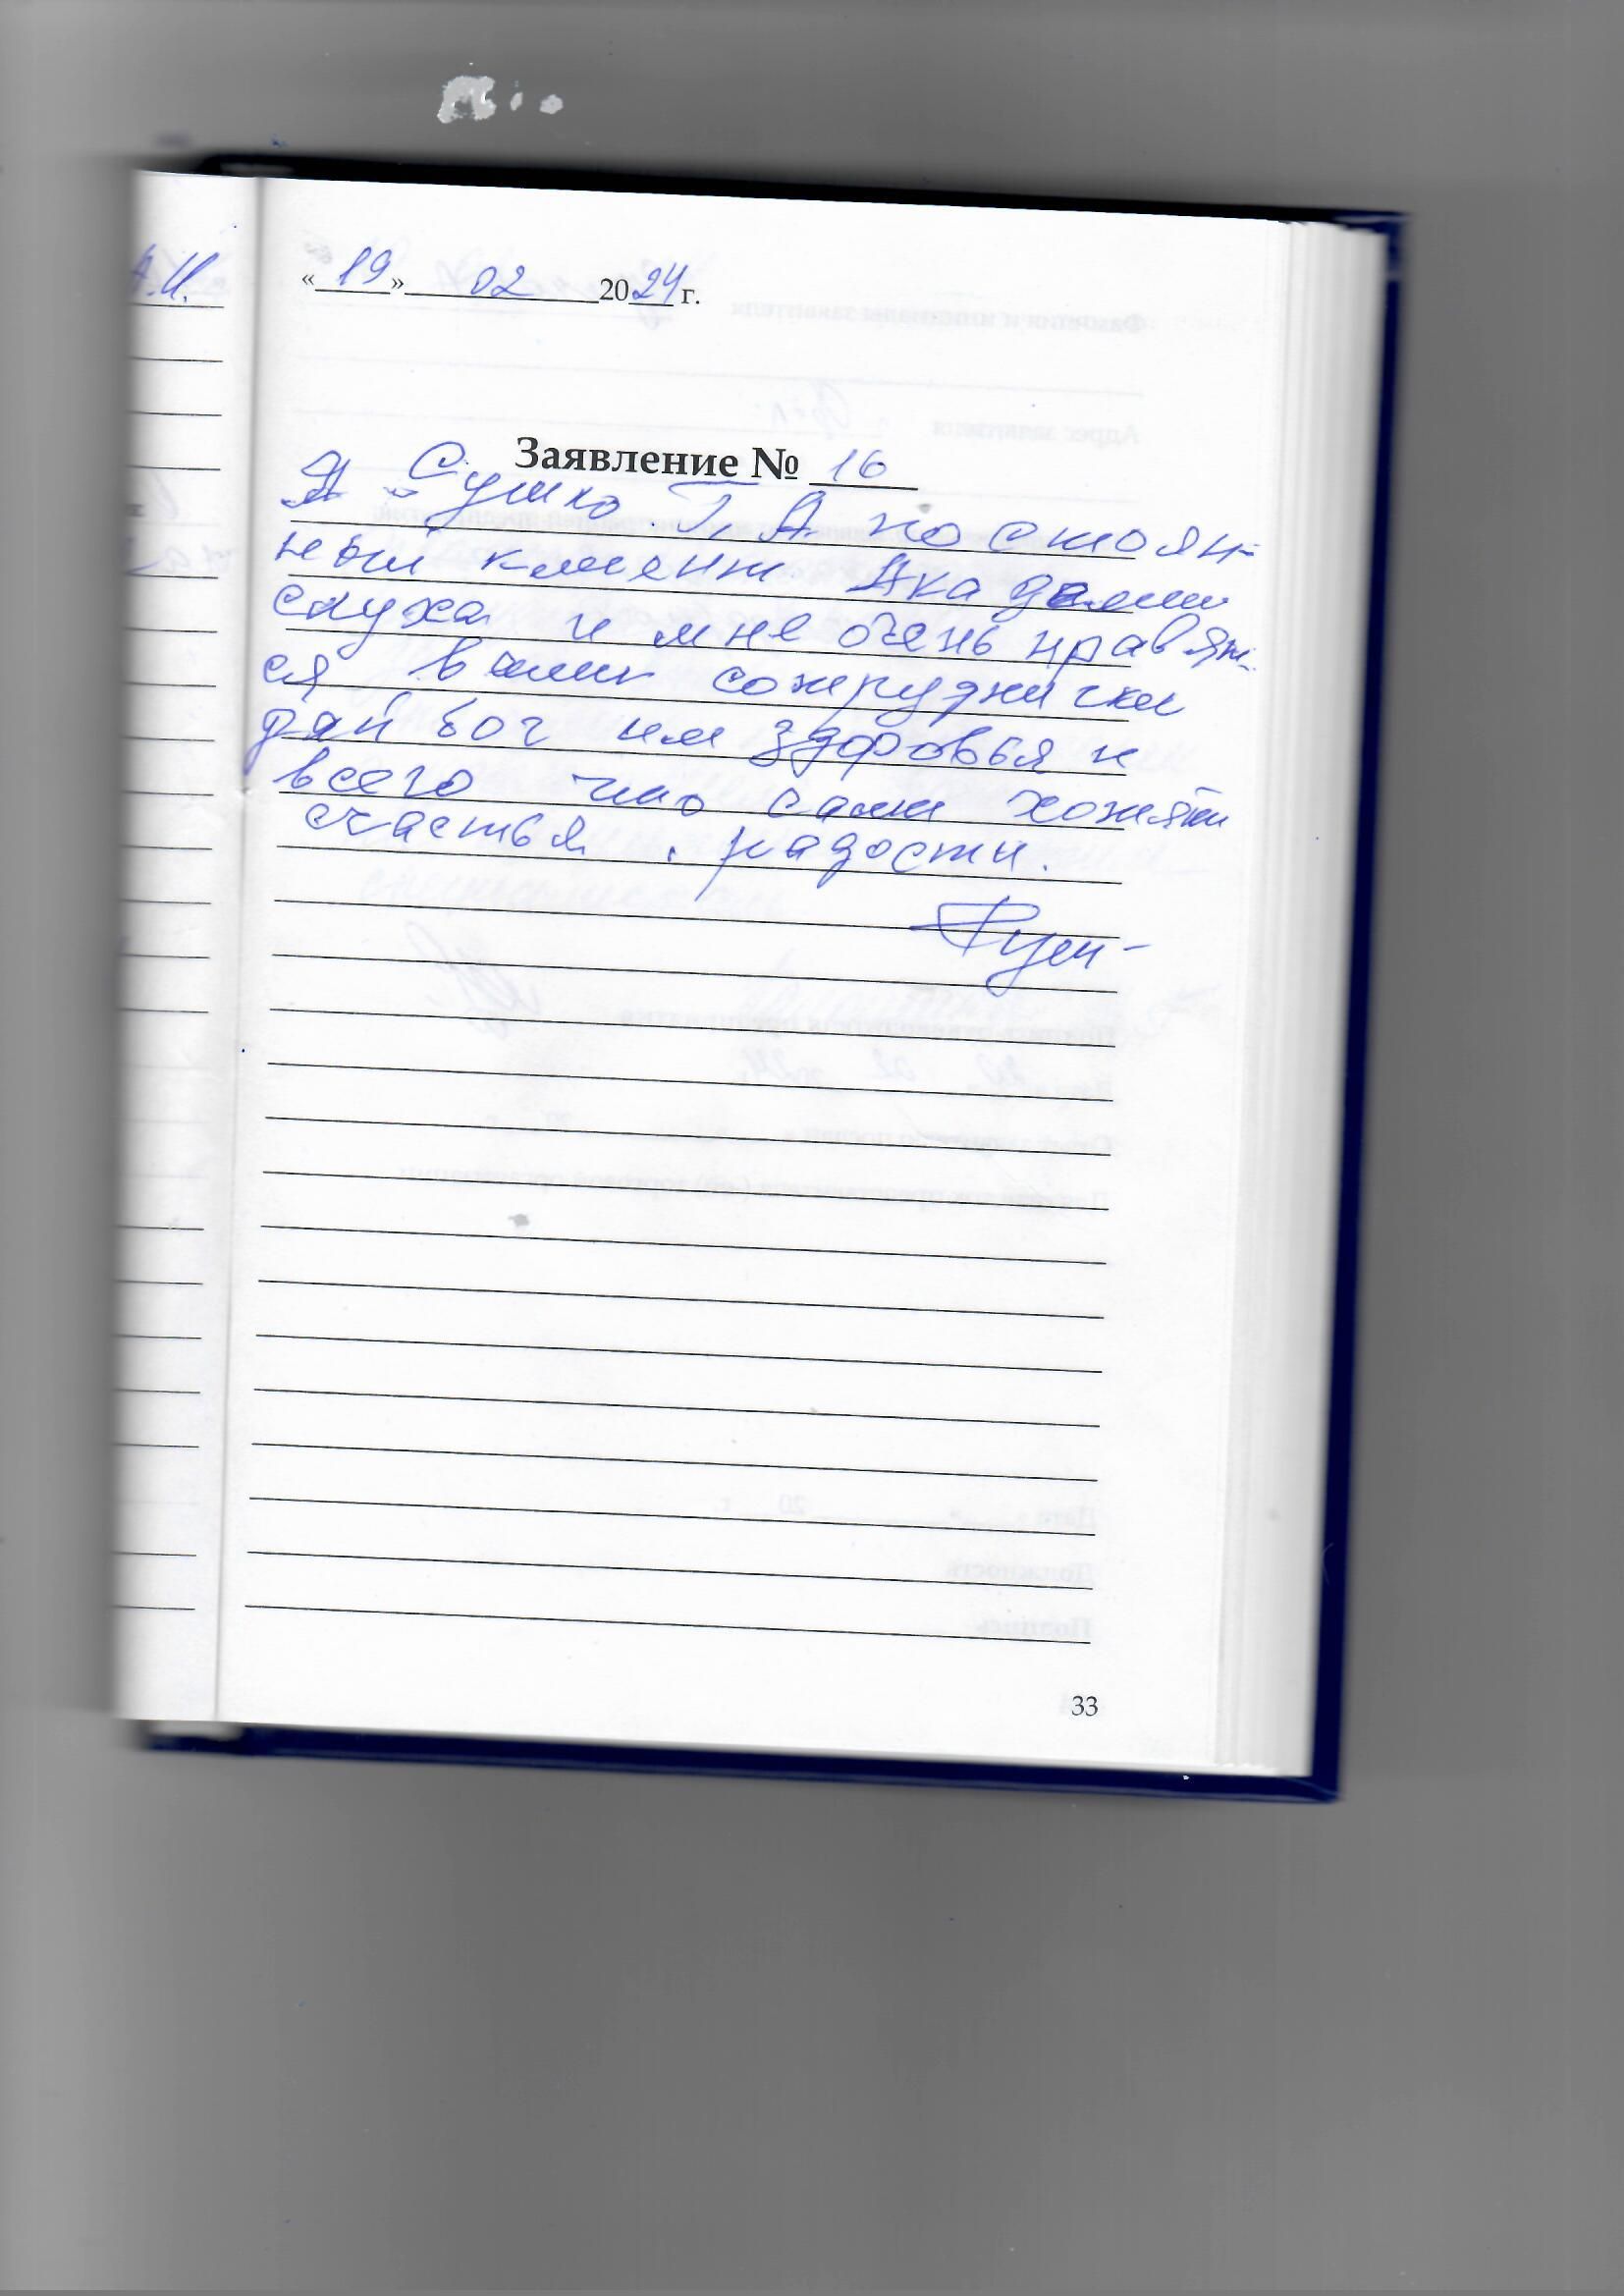 А.И.
« 19 » 02 2024 г.
Заявление № 16
Я Сушко Т. А постоян-
ный клиент Академии
слуха и мне очень нравят-
ся ваши сотруднички
дай бог им здоровья и
всего что сами хотят
счастья, радости.
33